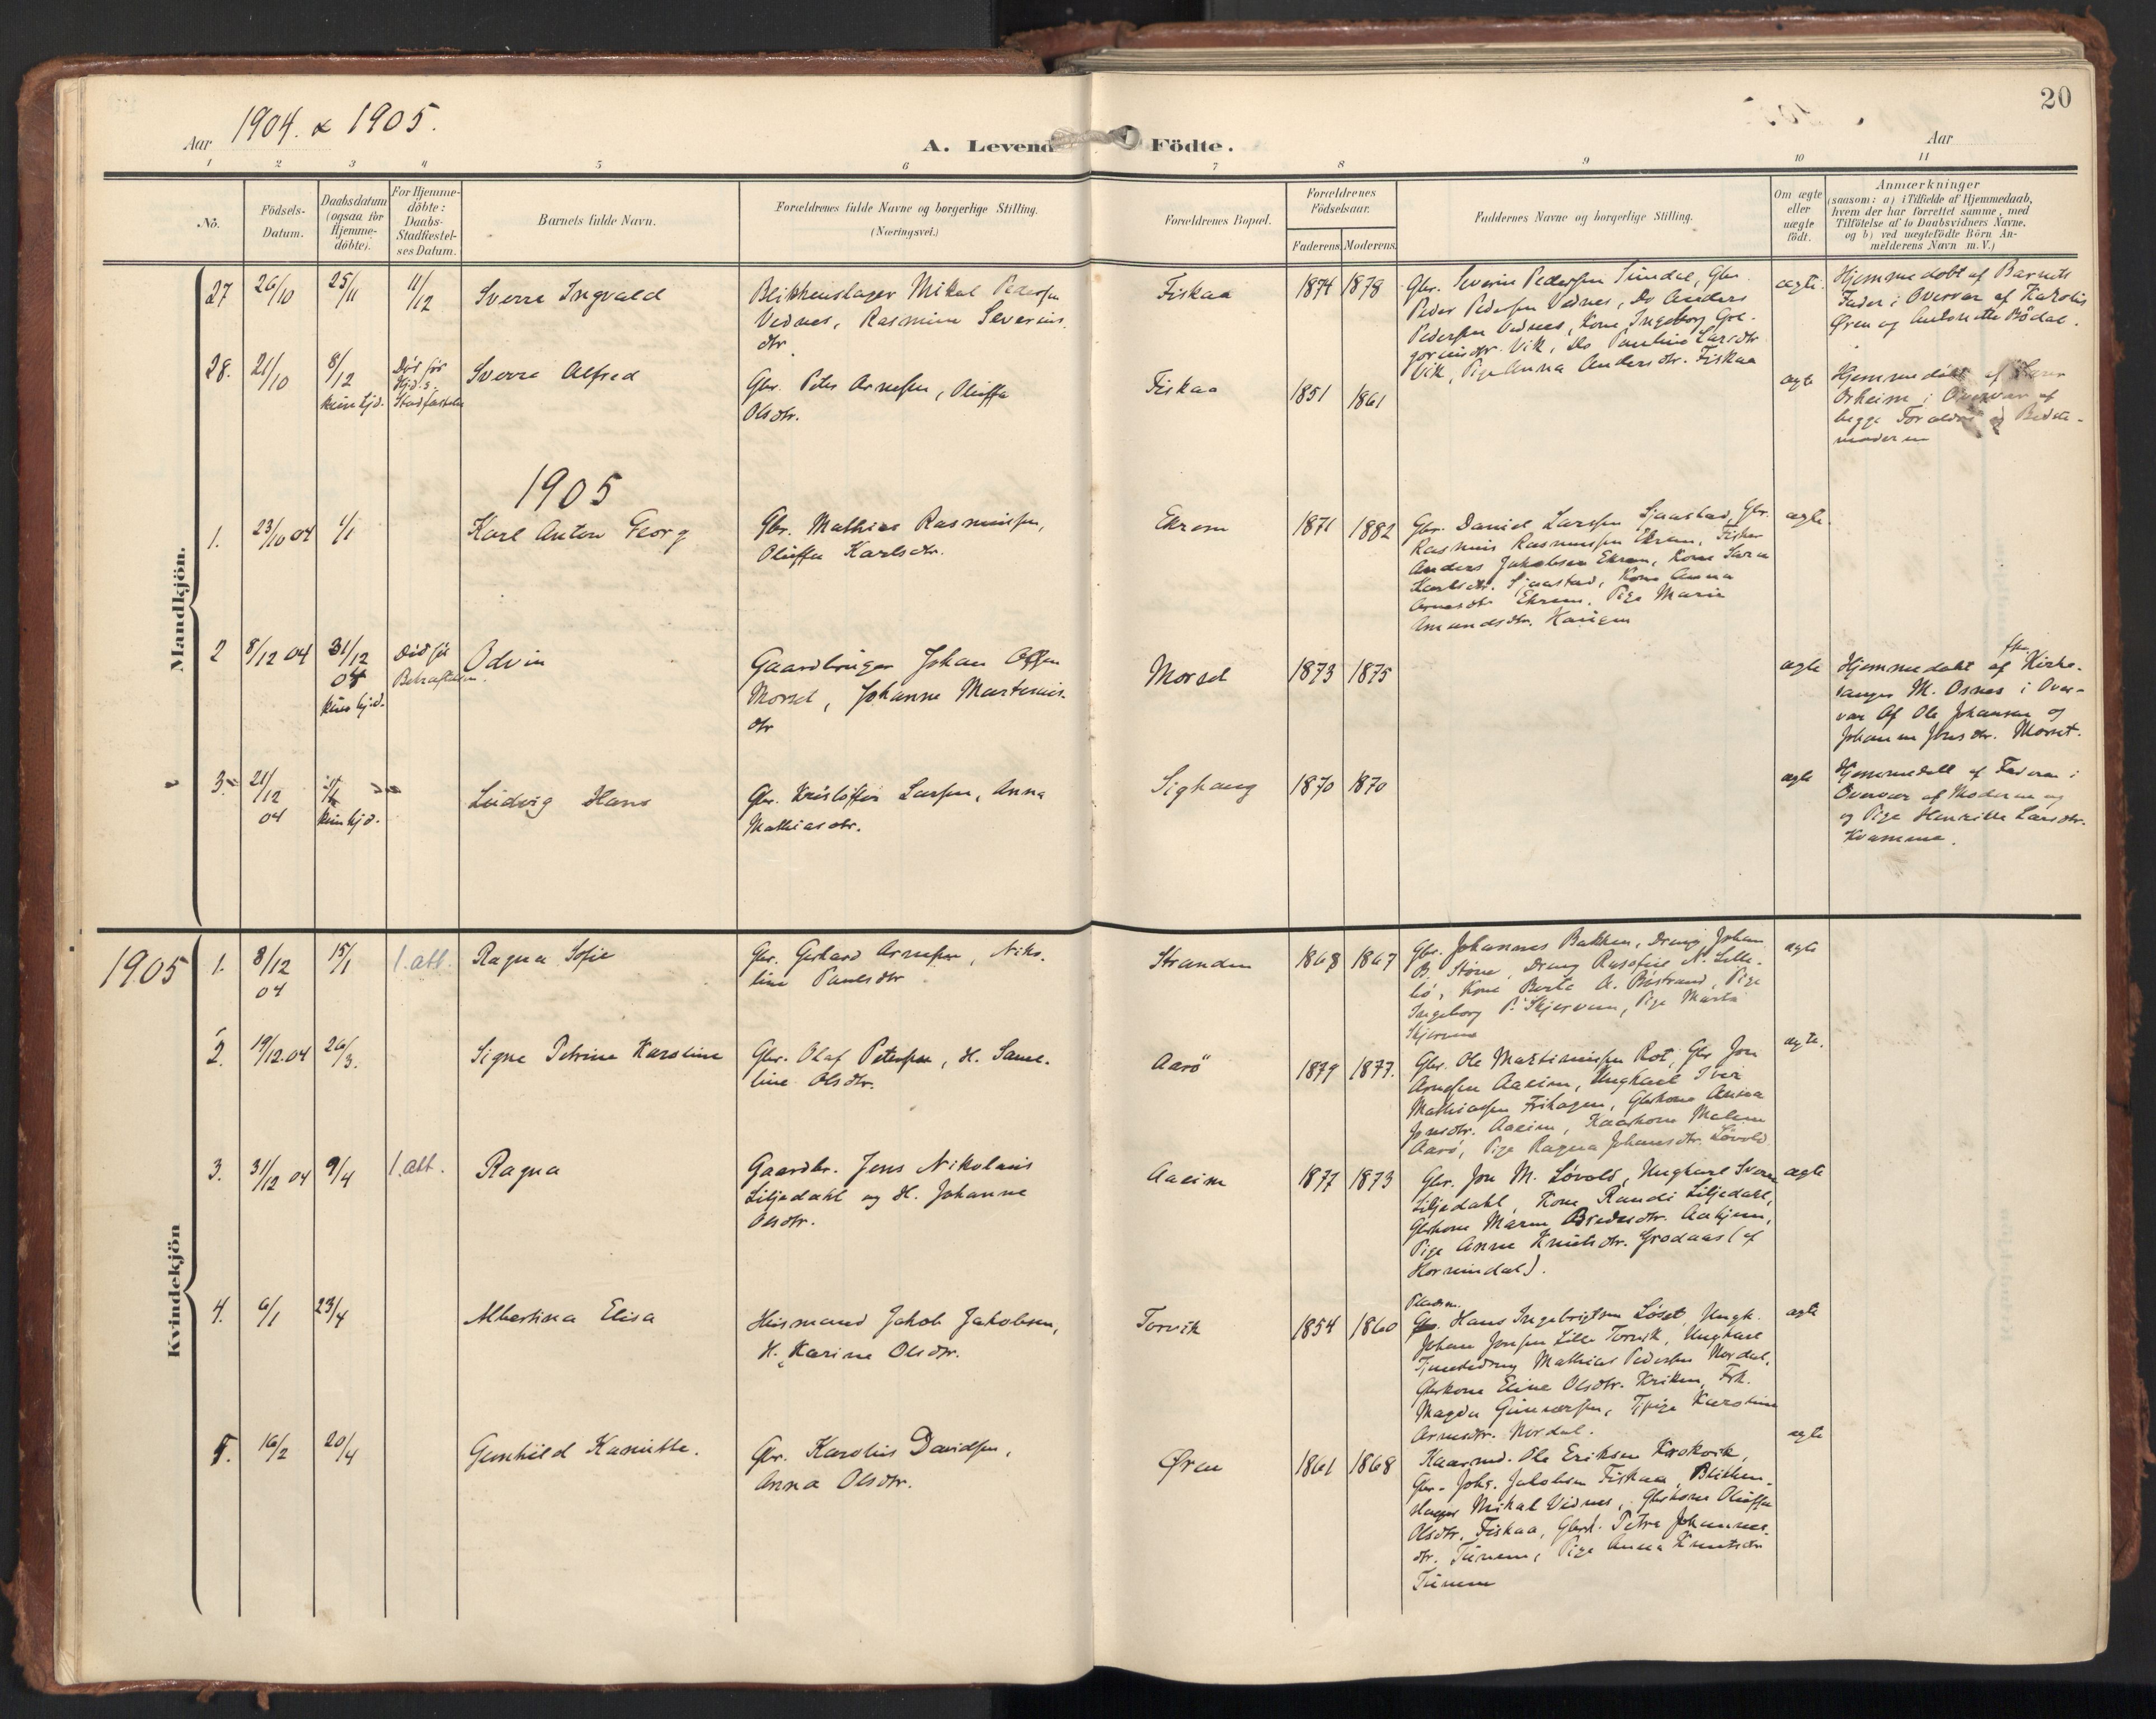 1904. & 1905.
20
Aar
A. Levend Födte.
Aar
1 2 3 4 5 6 7 8 9 10 11
No.
Födsels-Datum.
Daabsdatum (ogsaa for Hjemme-döbte).
For Hjemme-döbte: Daabs-Stadfæstel-ses Datum.
Barnets fulde Navn.
Forældrenes fulde Navne og borgerlige Stilling.
(Næringsvei.)
Forældrenes Bopæl.
Forældrenes Födselsaar.
Faderens. Moderens.
Faddernes Navne og borgerlige Stilling.
Om ægte eller uægte födt.
Anmærkninger
(saasom: a) i Tilfælde af Hjemmedaab,
hvem der har forrettet samme, med
Tilföielse af to Daabsvidners Navne,
og b) ved uægtefödte Börn An-
melderens Navn m. V.)
Mandkjön.
27 26/10 25/11 11/12 Sverre Ingvald
Blikkenslager Mikal Pedersen
Vidnes, Rasmine Severins.
dtr.
Fiskaa 1874 1878
Gbr. Severin Pedersen Sundal, Gbr.
Peder Pedersen Vidnes, Do Anders
Pedersen Vidnes, Kone Ingeborg Gre-
goriusdtr. Vik, Do Pauline Larsdtr
Vik, Pige Anna Andersdtr. Fiskaa
ægte.
Hjemmedøbt af Barnets
Fader i Overvær af Karolis
Øren og Antonette Bödal.
28. 21/10 8/12 kun hjd. Död för Hjd.s. Stadfæstelse Sverre Alfred
Gbr. Peter Arnesen, Oluffa
Olsdtr.
Fiskaa 1851 1861
ægte
Hjemmedøbt af
Orheim i Overvær af
begge Forældre og Bedste-
moderen
1905
1. 23/10 04 1/1 Karl Anton Georg
Gbr. Mathias Rasmussen,
Oluffa Karlsdtr.
Ekrem 1871 1882
Gbr. Daniel Larssen Sjaastad, Gbr.
Rasmus Rasmussen Ekrem, Fisker
Anders Jakobsen Ekrem, Kone Sara
Karlsdtr. Sjaastad, Kone Anna
Arnesdtr Ekrem, Pige Marie
Amundsdtr. Haugen
ægte.
2 8/12 04 31/12 04 kun hjd. Död før Bekræftelsen. Odvin
Gaardbruger Johan Olsen
Morset, Johanne Martinus-
dtr
Morset 1873 1875
ægte
Hjemmedøbt af fhv. Kirke-
sanger M. Osnes i Over-
vær Af Ole Johansen og
Johanne Jonsdtr. Morset.
3. 21/12 04 1/1 kun hjd. Ludvig Hans
Gbr. Kristoffer Larsen, Anna
Mathiasdtr.
Sighaug 1870 1870
ægte
Hjemmedøbt af Faderen i
Overvær af Moderen og
og Pige Henrikke Larsdtr.
Kvamme.
1905
Kvindekjön
1. 8/12 04 15/1 1.att. Ragna Sofie
Gbr. Gerhard Arnesen, Niko-
line Paulsdtr
Stranden 1868 1867
Gbr. Johannes Bakken, Dreng Johan
B. Støve, Dreng N. Lille-
bö, Kone Berte A. Bøstrand, Pige
Ingeborg P. Skjervum, Pige Marta
Skjervum
ægte
2. 19/12.04 26/3. Signe Petrine Karoline
Gbr. Olaf Petersen, H. Samu-
line Olsdtr.
Aarö 1879 1877.
Gbr. Ole Martinussen Rot, Gbr Jon
Arnesen Aaeim, Ungkarl Iver
Mathiassen Frihagen, Gbrkone Anna
Jonsdtr. Aaeim, Kaarkone Malene
Aarö, Pige Ragna Johansdtr. Løvold
ægte.
3. 31/12 04 9/4 1.att. Ragna
Gaardbr. Jens Nikolaus
Liljedahl og H. Johanne
Olsdtr.
Aaeim 1877 1873
Gbr. Jon M. Løvold, Ungkarl Sverre
Liljedahl, Kone Randi Liljedahl,
Gbrkone Maren Bredesdtr. Aahjem,
Pige Anne Knutsdtr. Grodaas (af
Hornindal).
ægte
4. 6/1 23/4 Albertina Elisa
Husmand Jakob Jakobsen,
H. Karine Olsdtr.
Torvik 1854 1860
Pladsm.
Gbr. Hans Ingebrigtsen Løset, Ungk.
Johan Jonsen Lille Torvik, Ungkarl
Tjenestedreng Mathias Pedersen Nordal,
Gbrkone Eline Olsdtr. Kriken, Frk.
Magda Gunnersen, Tjpige Karoline
Arnesdtr. Nordal.
ægte
5. 16/2 20/4 Gunhild Kamitta.
Gbr. Karolus Davidsen,
Anna Olsdtr.
Øren 1861 1868
Kaarmd. Ole Eriksen Krokvik,
Gbr. Johs. Jakobsen Fiskaa, Blikken-
slager Mikal Vidnes, Gbrkone Oluffa
Olsdtr. Fiskaa, Gbrd. Petra Johannes-
dtr. Tunem, Pige Anna Knutsdtr
Tunem
ægte